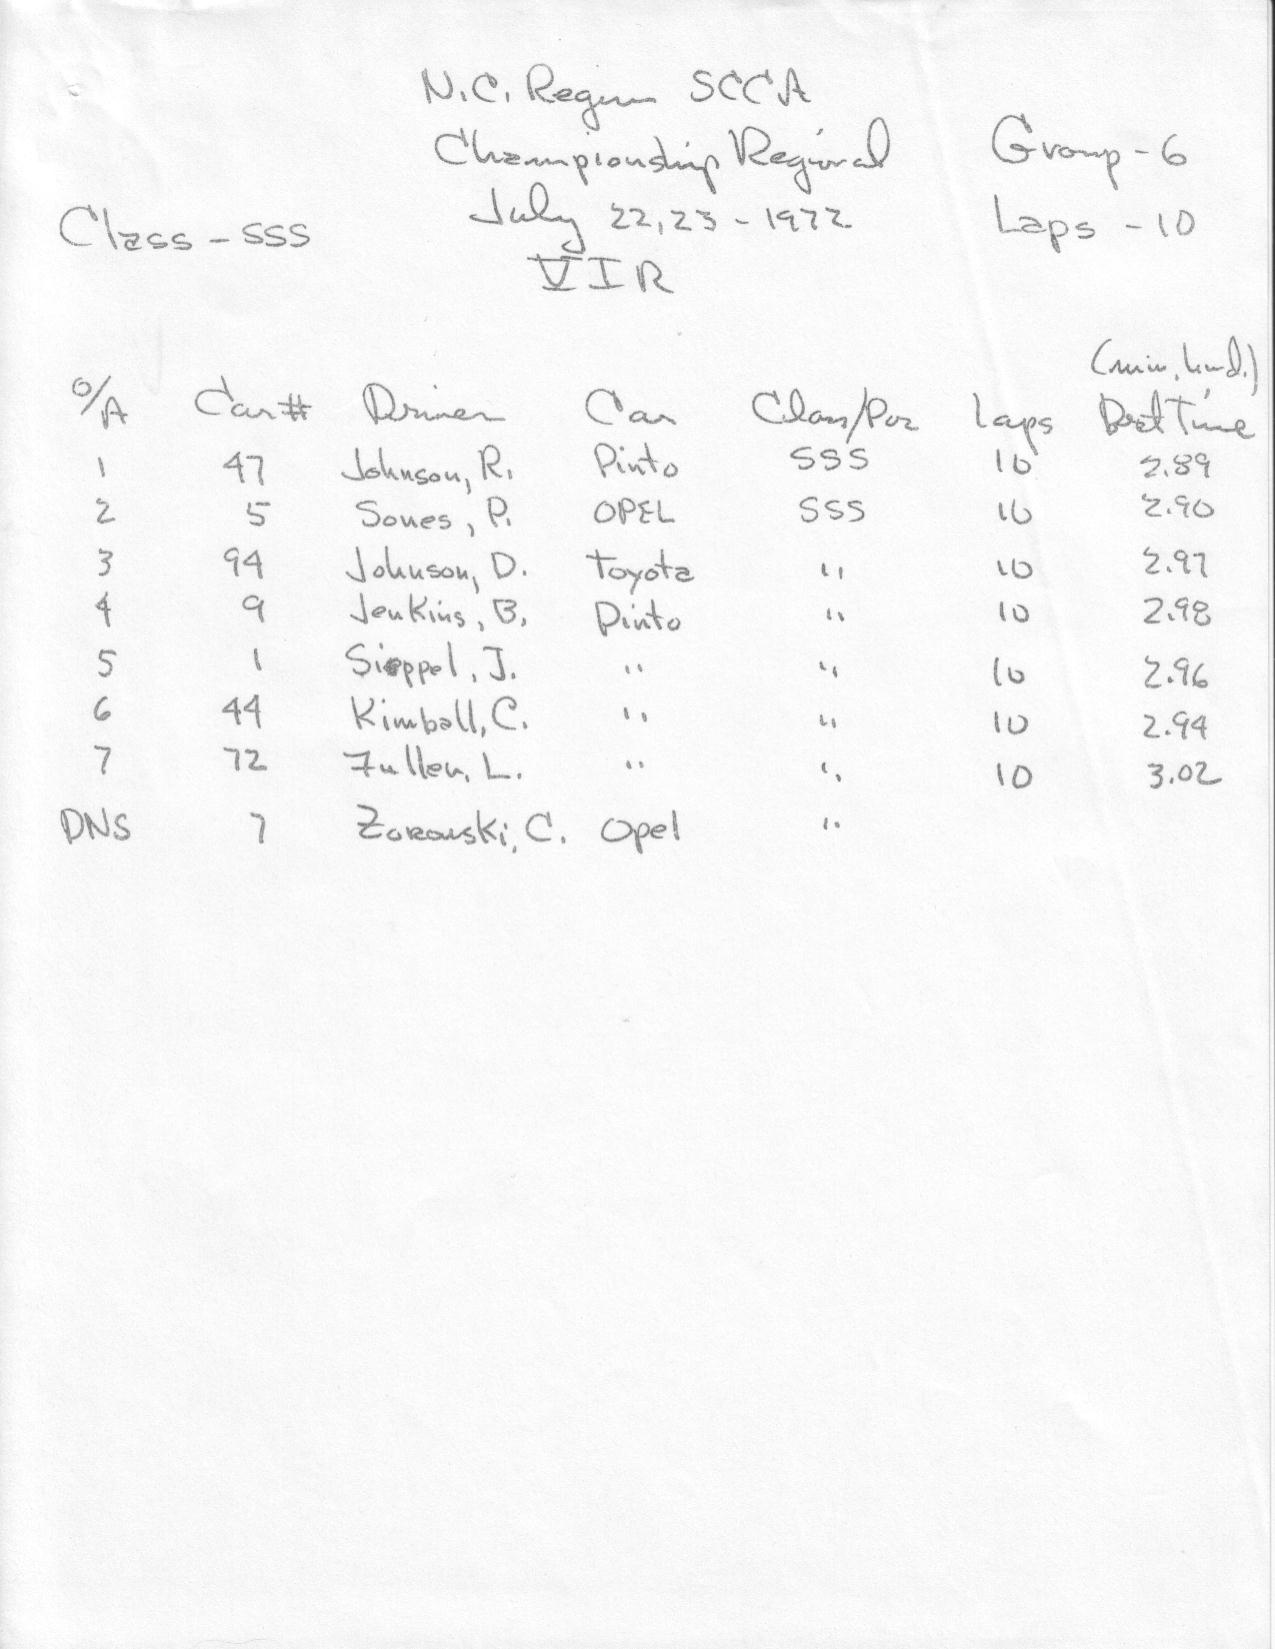 N.C. Region SCCA
Championship Regional
Group - 6
July 22,23 - 1972
Laps - 10
Class - SSS
VIR
(min, hund.)
O/A Car# Driver Car Class/Pos Laps Best Time
1 47 Johnson, R. Pinto SSS 10 2.89
2 5 Soues, P. OPEL SSS 10 2.90
3 94 Johnson, D. Toyota " 10 2.97
4 9 Jenkins, B. Pinto " 10 2.98
5 1 Sieppel, J. " " 10 2.96
6 44 Kimball, C. " " 10 2.94
7 72 Fullen, L. " " 10 3.02
DNS 7 Zorowski, C. Opel "